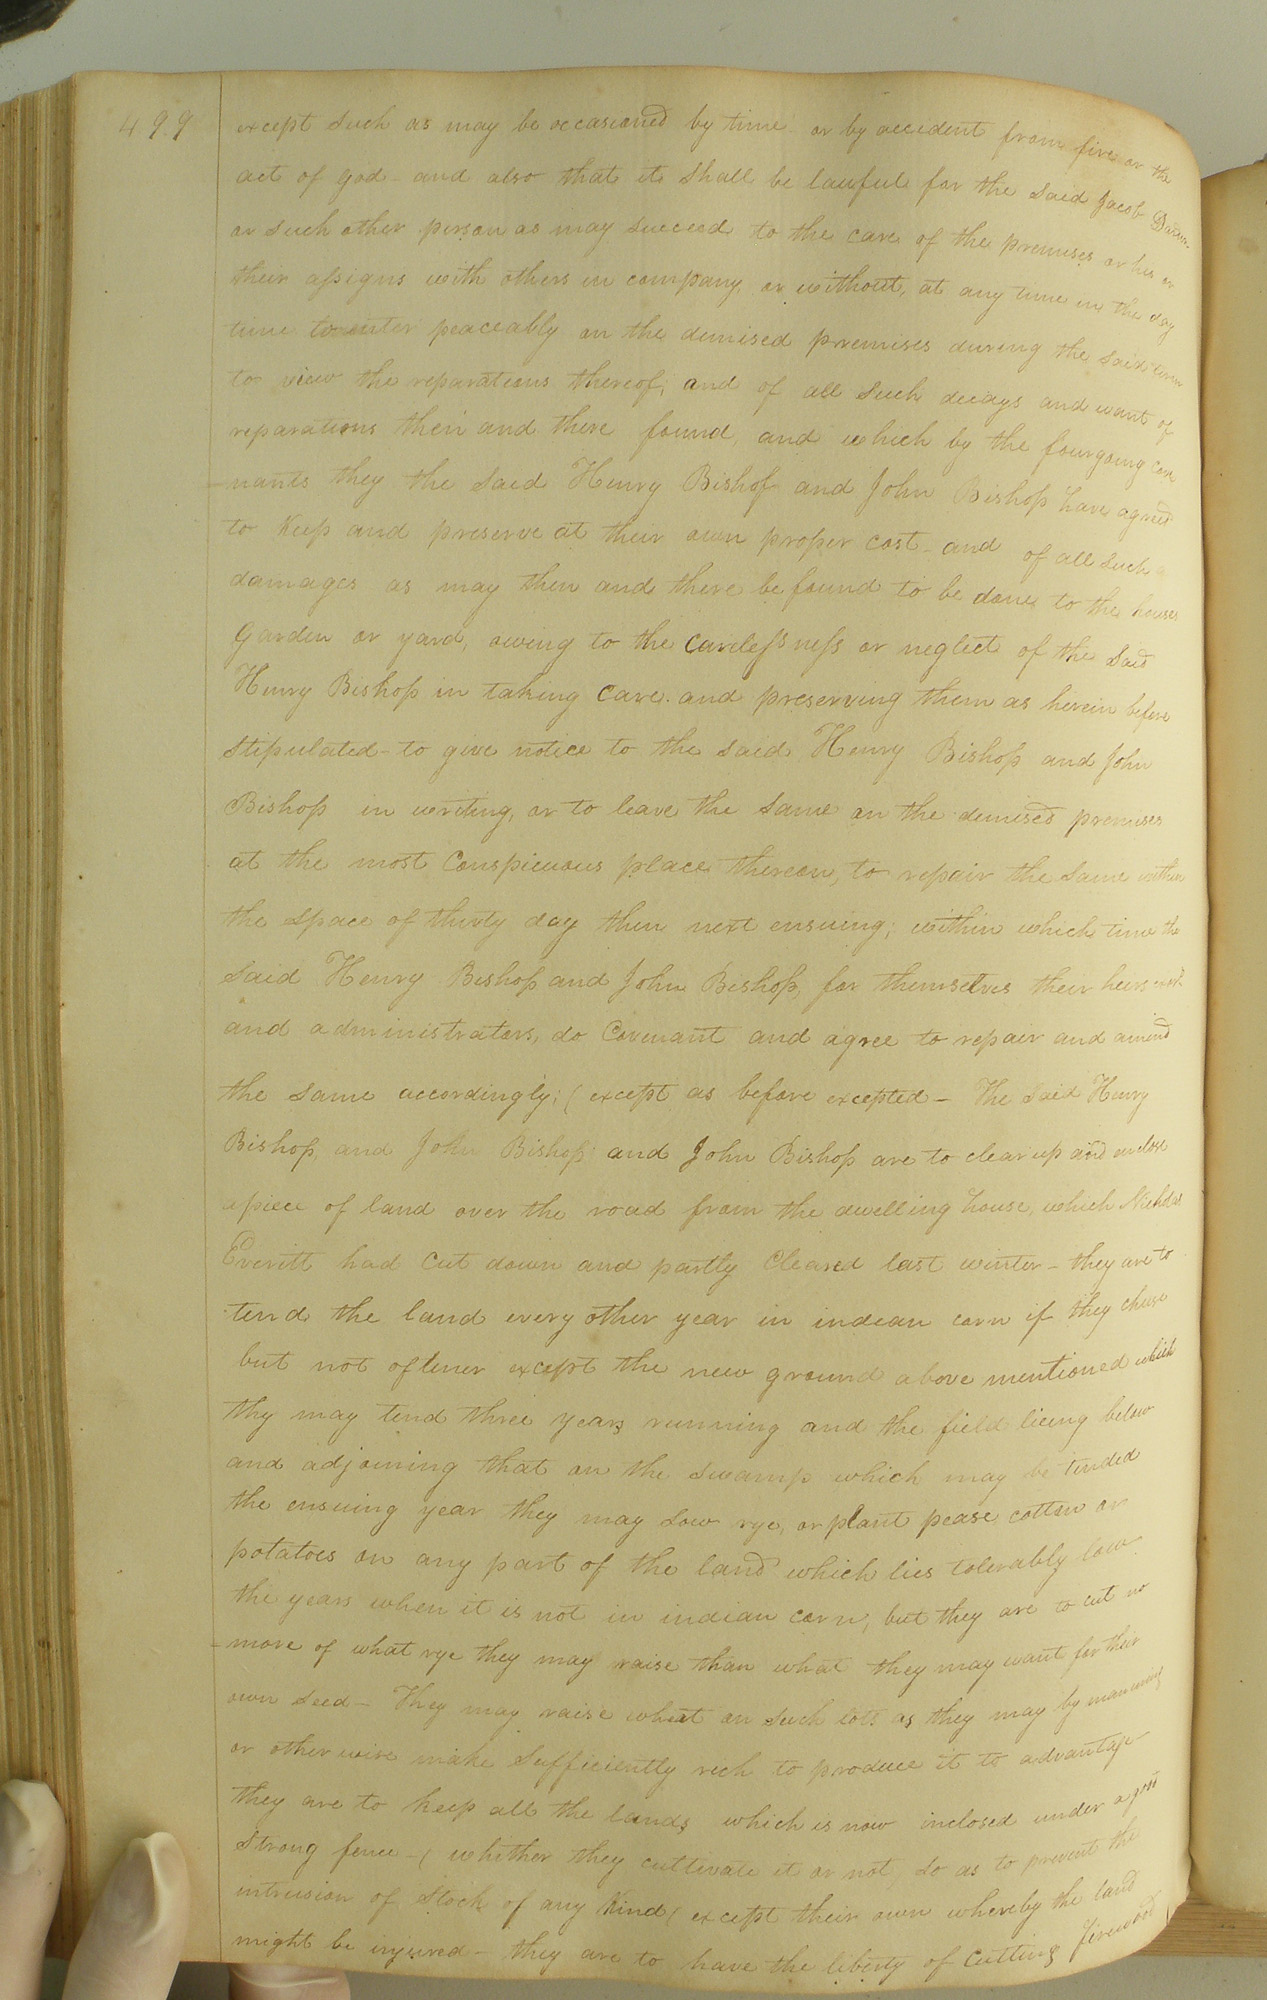 499
except such as may be occasioned by time or by accident from fire or the
act of god and also that it shall be lawful for the said Jacob
or such other person as may succeed to the care of the premises or his or
their assigns with others in company or without, at any time in the day
time to enter peaceably on the demised premises during the said term
to view the reparations thereof, and of all such decays and want of
reparations then and there found, and which by the fourgoing cove
nants they the said Henry Bishop and John Bishop have agreed
to Keep and preserve at their own proper cost - and of all such
damages as may then and there be found to be done to the houses
Garden or yard, owing to the carelessness or neglect of the said
Henry Bishop in taking care and preserving them as herein before
stipulated - to give notice to the said Henry Bishop and John
Bishop in writing, or to leave the same on the demised premises
at the most Conspicuous place thereon, to repair the same within
the space of thirty day then next ensuing; within which time the
said Henry Bishop and John Bishop, for themselves their heirs
and administrators, do Covenant and agree to repair and amend
the same accordingly; ( except as before excepted - The said Henry
Bishop and John Bishop and John Bishop are to clear up and enclose
a piece of land over the road from the dwelling house, which Nicholas
Everitt had cut down and partly Cleared last winter - they are to
tend the land every other year in indean corn if they chuse
but not oftener except the new ground above mentioned which
thy may tend three years running and the field lieing below
and adjoining that on the swamp which may be tended
the ensuing year they may sow rye, or plant pease cotton or
potatoes on any part of the land which lies tolerably low
the years when it is not in indian corn, but they are to cut no
- more of what rye they may raise than what they may want for their
own seed - They may raise wheat on such lots as they may by manuring
or otherwise make sufficiently rich to produce it to advantage
they are to keep all the lands which is now inclosed under a good
strong fence - ( whither they cultivate it or not, so as to prevent the
intrusion of stock of any Kind ( except their own whereby the land
might be injured - they are to have the liberty of cutting firewood